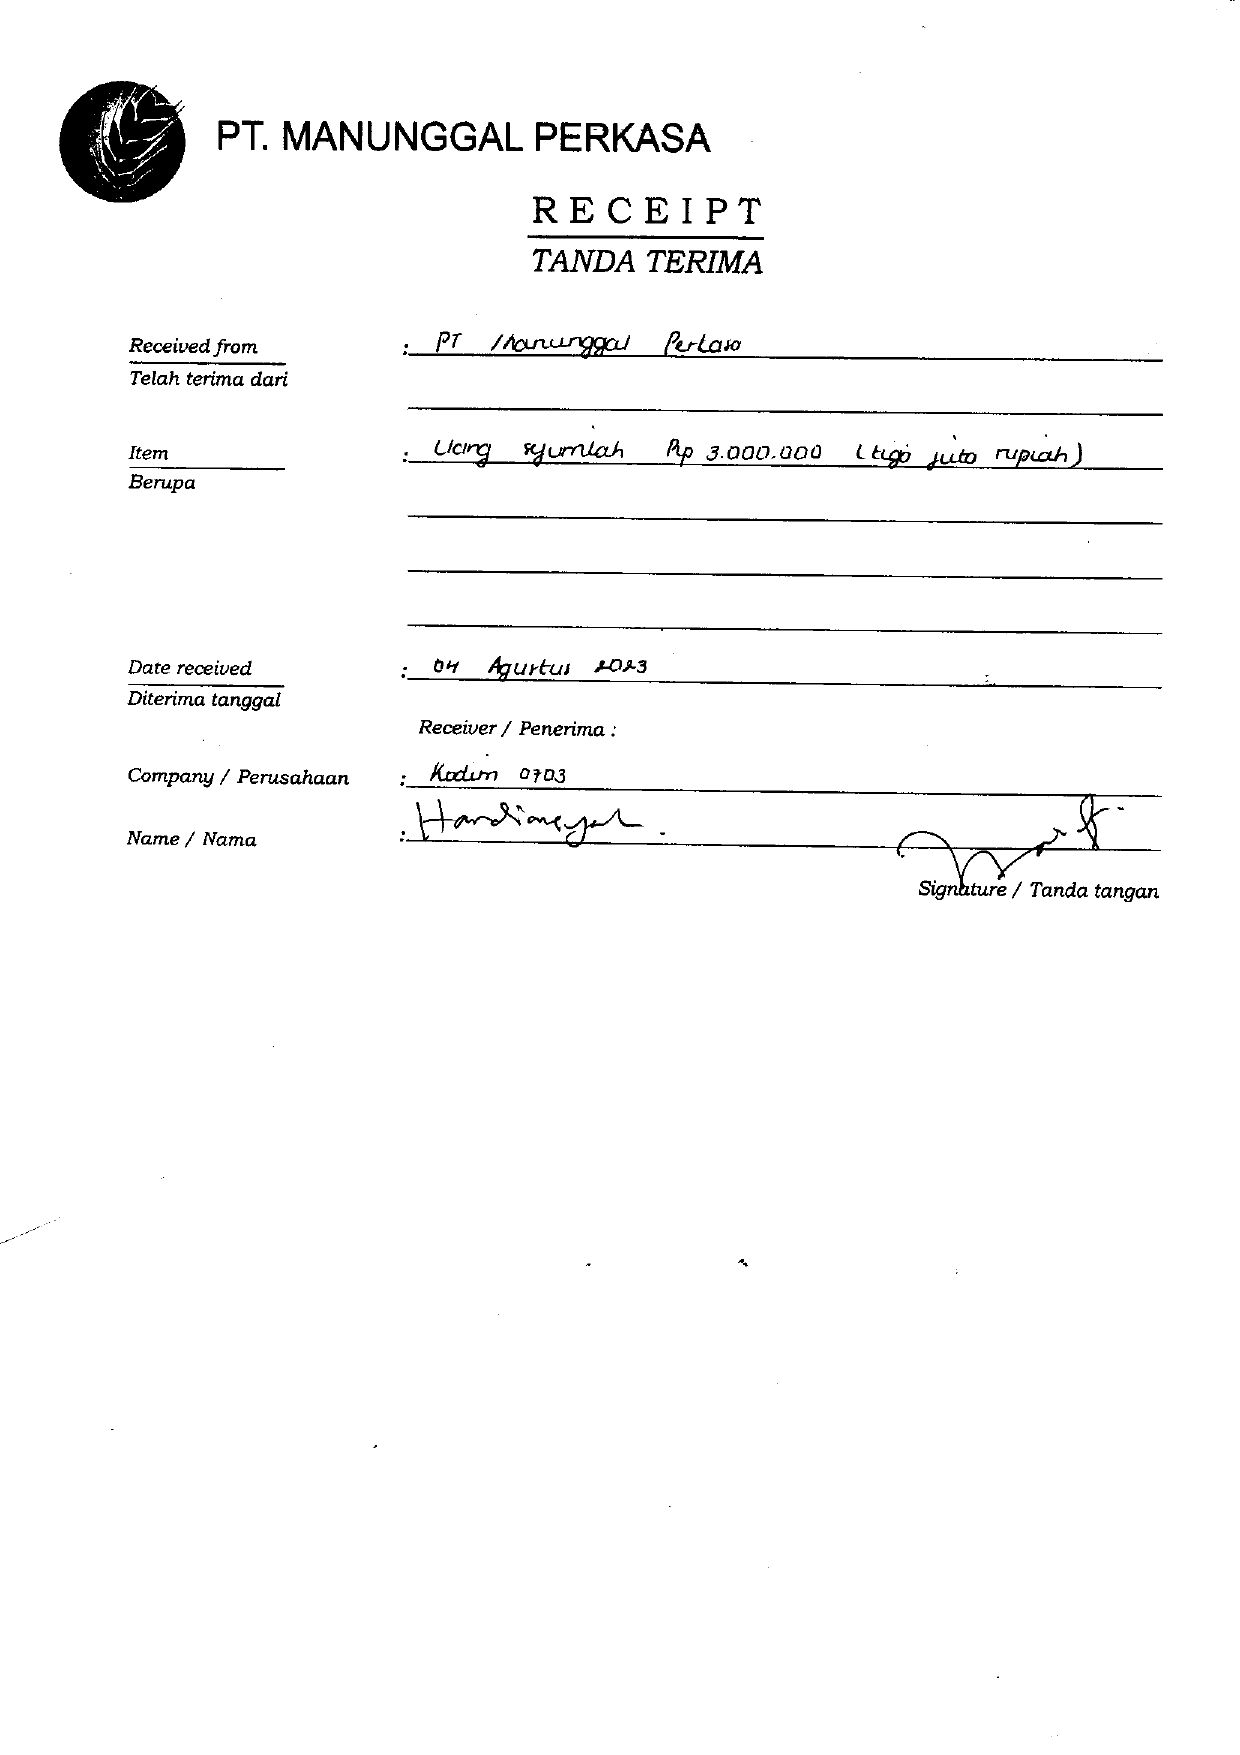 PT. MANUNGGAL PERKASA
RECEIPT
TANDA TERIMA
Received from : PT Manunggal Perkasa
Telah terima dari
Item : Uang sejumlah Rp 3.000.000 (tiga juta rupiah)
Berupa
Date received : 04 Agustus 2023
Diterima tanggal
Receiver / Penerima :
Company / Perusahaan : Kodim 0703
Name / Nama :
Signature / Tanda tangan